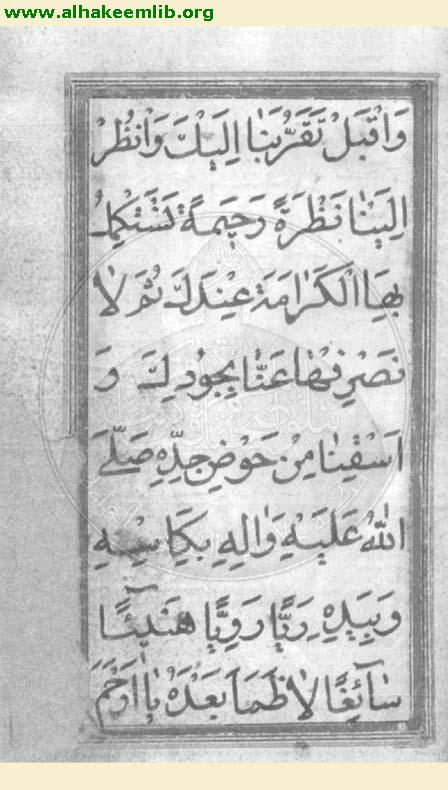 www.alhakeemlib.org
وَاقْبَلْ تَقَرُّبَنٰا اِلَيْكَ وَانْظُرْ
اِلَيْنٰا نَظْرَةً رَحٖيمَةً نَسْتَكْمِلُ
بِهَا الْكَرٰامَةَ عِنْدَكَ ثُمَّ لاٰ
تَصْرِفْهٰا عَنّٰا بِجُودِكَ وَ
اسْقِنٰا مِنْ حَوْضِ جَدِّهٖ صَلَّى
اللّٰهُ عَلَيْهِ وَاٰلِهٖ بِكَاْسِهٖ
وَبِيَدِهٖ رَيًّا رَوِيًّا هَنٖيٓئًا
سٰآئِغًا لاٰ ظَمَاَ بَعْدَهُ يٰا اَرْحَمَ